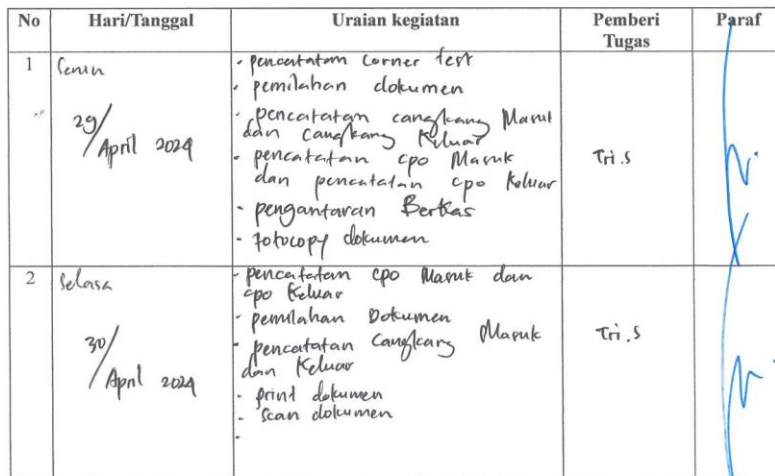 No Hari/Tanggal Uraian kegiatan Pemberi Tugas Paraf
1 Senin
29/April 2024
- pencatatan Corner test
- pemilahan dokumen
- pencatatan cangkang Masuk
dan cangkang Keluar
- pencatatan cpo Masuk
dan pencatatan cpo Keluar
- pengantaran Berkas
- fotocopy dokumen
Tri.S
2 Selasa
30/April 2024
- pencatatan cpo Masuk dan
cpo Keluar
- pemilahan Dokumen
- pencatatan Cangkang Masuk
dan Keluar
- print dokumen
- scan dokumen
-
Tri.S